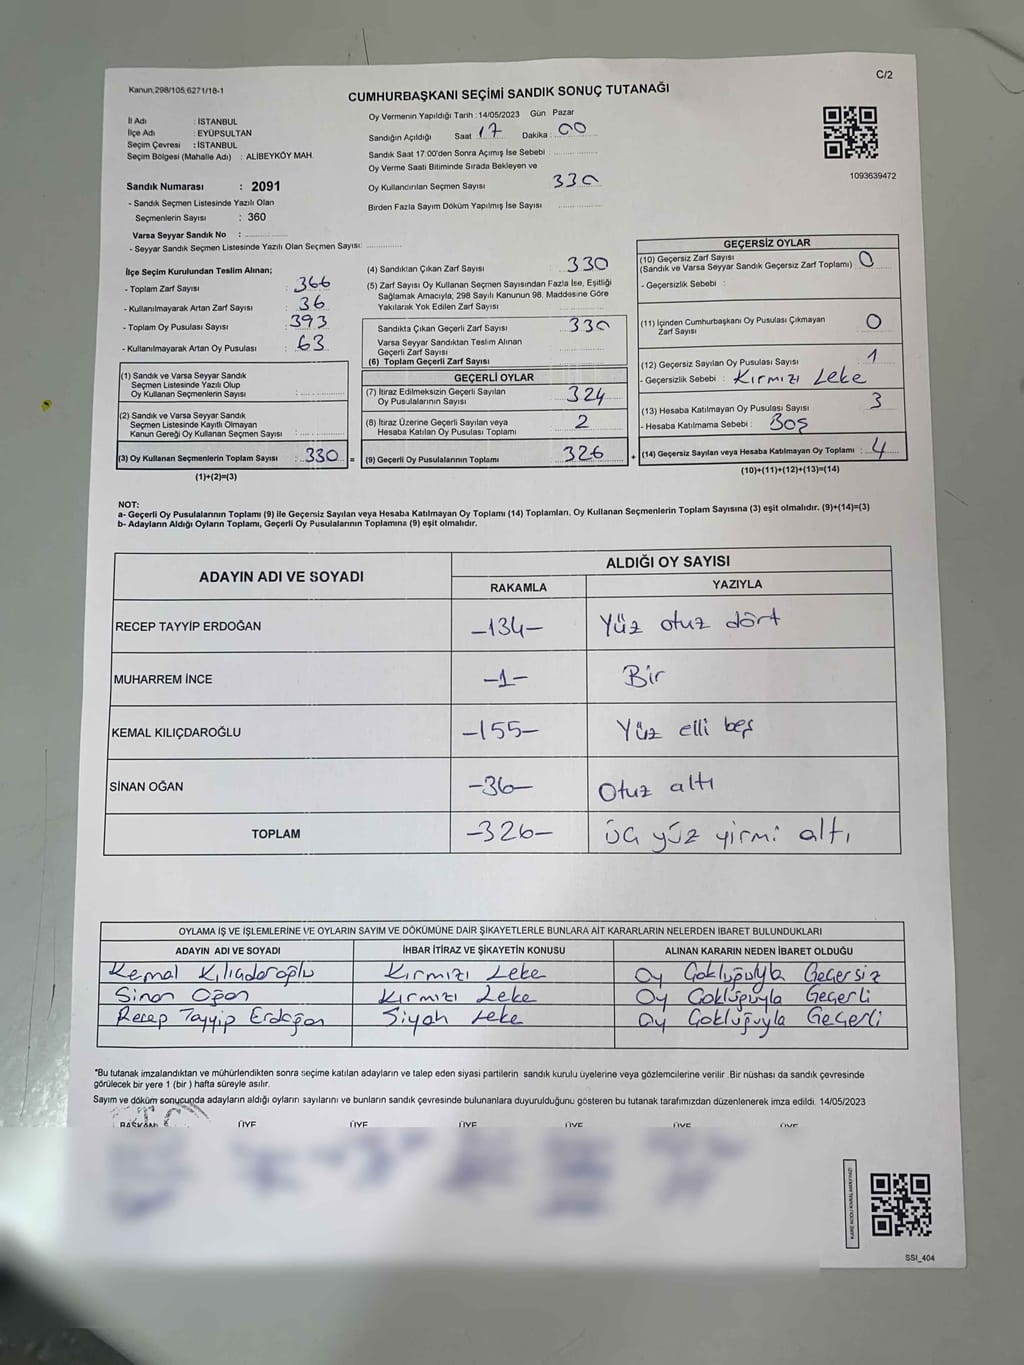 C/2
Kanun,298/105,6271/18-1
CUMHURBAŞKANI SEÇİMİ SANDIK SONUÇ TUTANAĞI
İl Adı : İSTANBUL
İlçe Adı : EYÜPSULTAN
Seçim Çevresi : İSTANBUL
Seçim Bölgesi (Mahalle Adı) : ALİBEYKÖY MAH.
Sandık Numarası : 2091
- Sandık Seçmen Listesinde Yazılı Olan
Seçmenlerin Sayısı : 360
Varsa Seyyar Sandık No :
- Seyyar Sandık Seçmen Listesinde Yazılı Olan Seçmen Sayısı:
Oy Vermenin Yapıldığı Tarih :14/05/2023 Gün Pazar
Sandığın Açıldığı Saat 17 Dakika: 00
Sandık Saat 17:00'den Sonra Açımış İse Sebebi
Oy Verme Saati Bitiminde Sırada Bekleyen ve
Oy Kullandırılan Seçmen Sayısı 330
Birden Fazla Sayım Döküm Yapılmış İse Sayısı
1093639472
İlçe Seçim Kurulundan Teslim Alınan;
- Toplam Zarf Sayısı : 366
- Kullanılmayarak Artan Zarf Sayısı : 36
- Toplam Oy Pusulası Sayısı : 393
- Kullanılmayarak Artan Oy Pusulası : 63
(1) Sandık ve Varsa Seyyar Sandık
Seçmen Listesinde Yazılı Olup
Oy Kullanan Seçmenlerin Sayısı :
(2) Sandık ve Varsa Seyyar Sandık
Seçmen Listesinde Kayıtlı Olmayan
Kanun Gereği Oy Kullanan Seçmen Sayısı :
(3) Oy Kullanan Seçmenlerin Toplam Sayısı : 330 =
(1)+(2)=(3)
(4) Sandıktan Çıkan Zarf Sayısı 330
(5) Zarf Sayısı Oy Kullanan Seçmen Sayısından Fazla İse, Eşitliği
Sağlamak Amacıyla, 298 Sayılı Kanunun 98. Maddesine Göre
Yakılarak Yok Edilen Zarf Sayısı
Sandıkta Çıkan Geçerli Zarf Sayısı 330
Varsa Seyyar Sandıktan Teslim Alınan
Geçerli Zarf Sayısı
(6) Toplam Geçerli Zarf Sayısı
GEÇERLİ OYLAR
(7) İtiraz Edilmeksizin Geçerli Sayılan
Oy Pusulalarının Sayısı 324
(8) İtiraz Üzerine Geçerli Sayılan veya
Hesaba Katılan Oy Pusulası Toplamı 2
(9) Geçerli Oy Pusulalarının Toplamı 326 +
GEÇERSİZ OYLAR
(10) Geçersiz Zarf Sayısı
(Sandık ve Varsa Seyyar Sandık Geçersiz Zarf Toplamı) 0
- Geçersizlik Sebebi :
(11) İçinden Cumhurbaşkanı Oy Pusulası Çıkmayan
Zarf Sayısı 0
(12) Geçersiz Sayılan Oy Pusulası Sayısı 1
- Geçersizlik Sebebi : Kırmızı Leke
(13) Hesaba Katılmayan Oy Pusulası Sayısı 3
- Hesaba Katılmama Sebebi : Boş
(14) Geçersiz Sayılan veya Hesaba Katılmayan Oy Toplamı : 4
(10)+(11)+(12)+(13)=(14)
NOT:
a- Geçerli Oy Pusulalarının Toplamı (9) ile Geçersiz Sayılan veya Hesaba Katılmayan Oy Toplamı (14) Toplamları, Oy Kullanan Seçmenlerin Toplam Sayısına (3) eşit olmalıdır. (9)+(14)=(3)
b- Adayların Aldığı Oyların Toplamı, Geçerli Oy Pusulalarının Toplamına (9) eşit olmalıdır.
ADAYIN ADI VE SOYADI
ALDIĞI OY SAYISI
RAKAMLA YAZIYLA
RECEP TAYYİP ERDOĞAN -134- Yüz otuz dört
MUHARREM İNCE -1- Bir
KEMAL KILIÇDAROĞLU -155- Yüz elli beş
SİNAN OĞAN -36- Otuz altı
TOPLAM -326- üç yüz yirmi altı
OYLAMA İŞ VE İŞLEMLERİNE VE OYLARIN SAYIM VE DÖKÜMÜNE DAİR ŞİKAYETLERLE BUNLARA AİT KARARLARIN NELERDEN İBARET BULUNDUKLARI
ADAYIN ADI VE SOYADI İHBAR İTİRAZ VE ŞİKAYETİN KONUSU ALINAN KARARIN NEDEN İBARET OLDUĞU
Kemal Kılıçdaroğlu Kırmızı Leke Oy Çokluğuyla Geçersiz
Sinan Oğan Kırmızı Leke Oy Çokluğuyla Geçerli
Recep Tayyip Erdoğan Siyah Leke Oy Çokluğuyla Geçerli
*Bu tutanak imzalandıktan ve mühürlendikten sonra seçime katılan adayların ve talep eden siyasi partilerin sandık kurulu üyelerine veya gözlemcilerine verilir .Bir nüshası da sandık çevresinde
görülecek bir yere 1 (bir ) hafta süreyle asılır.
Sayım ve döküm sonucunda adayların aldığı oyların sayılarını ve bunların sandık çevresinde bulunanlara duyurulduğunu gösteren bu tutanak tarafımızdan düzenlenerek imza edildi. 14/05/2023
BAŞKAN ÜYE ÜYE ÜYE ÜYE ÜYE ÜYE
KARE KODU KARALAMAYINIZ!
SSI_404